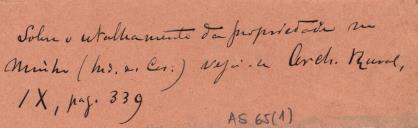 Sobre o retalhamento da propriedade no
Minho (Ind. us. Cer.) veja-se Arch. Rural,
IX, pag. 339
AS 65(1)